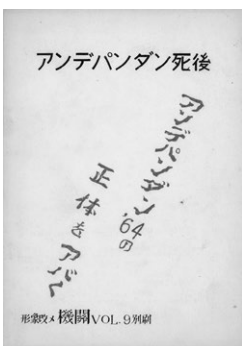 アンデパンダン死後
アンデパンダン'64の
正体をアバく
形象改メ機関VOL.9別刷